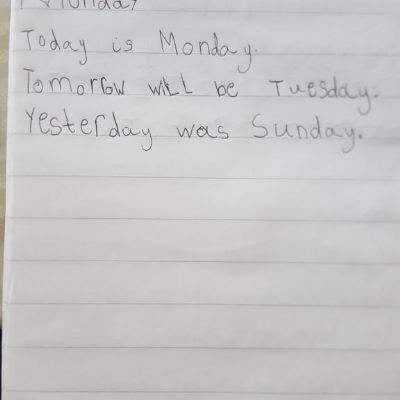 Monday
Today is Monday.
Tomorrow will be Tuesday.
Yesterday was Sunday.